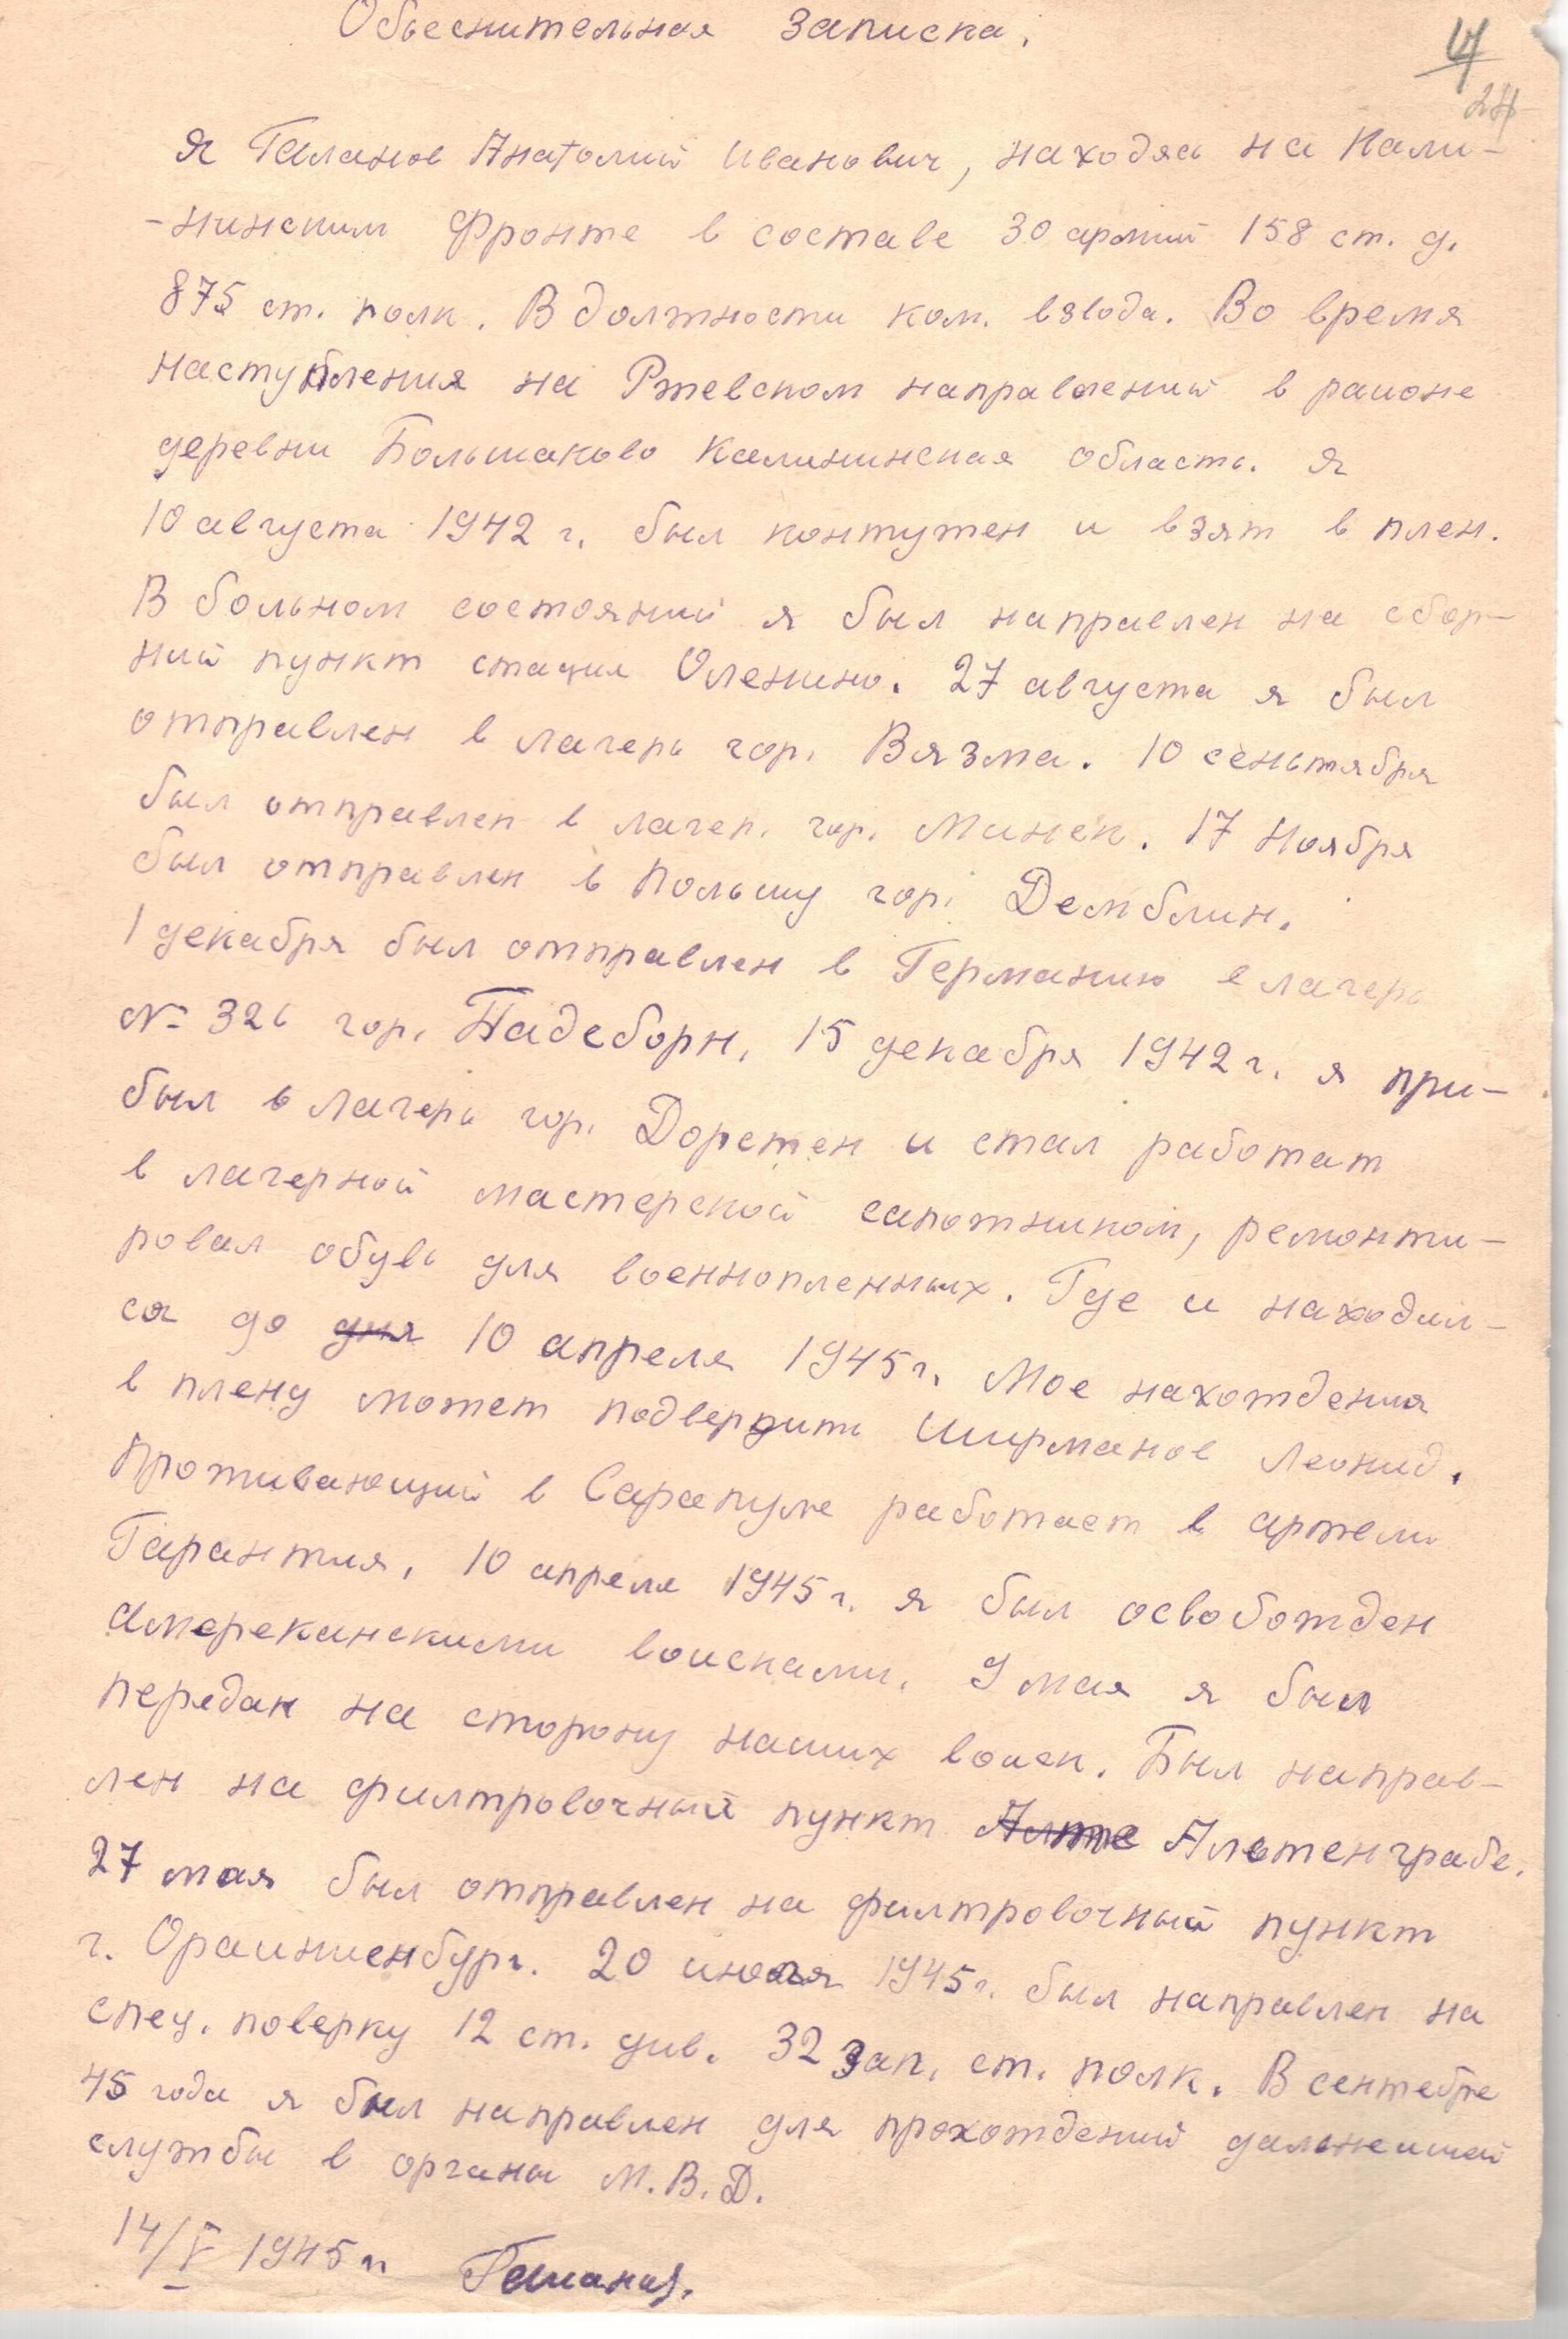 Обьеснительная записка.
4
24
Я Галанов Анатолий Иванович, находясь на Кали-
-нинским фронте в составе 30 армий 158 ст. д.
875 ст. полк. В должности ком. взвода. Во время
наступления на Ржевском направлений в районе
деревни Большаково Калининская область. Я
10 августа 1942 г. был контужен и взят в плен.
В больном состояний я был направлен на сбор-
ний пункт стация Оленино. 27 августа я был
отправлен в лагерь гор. Вязма. 10 сеньтября
был отправлен в лагер. гор. Минск. 17 ноября
был отправлен в Польшу гор. Демблин.
1 декабря был отправлен в Германию в лагерь
№ 326 гор. Падеборн. 15 декабря 1942 г. я при-
был в лагерь гор. Дорстен и стал работат
в лагерной мастерской сапожником, ремонти-
ровал обувь для военнопленных. Где и находил-
ся до дня 10 апреля 1945 г. Мое нахождения
в плену может подвердить Ширманов Леонид.
Проживающий в Сарапуле работает в артели
Гарантия. 10 апреля 1945 г. я был освобожден
Амереканскими воисками. 9 мая я был
передан на сторону наших воиск. Был направ-
лен на филтровочный пункт Алте Альтенграбе.
27 мая был отправлен на филтровочный пункт
г. Ораниненбург. 20 июля 1945 г. был направлен на
спец. поверку 12 ст. див. 32 зап. ст. полк. В сентебре
45 года я был направлен для прохождений дальнеишей
службы в органы М.В.Д.
14/V 1945 г. Галанов.